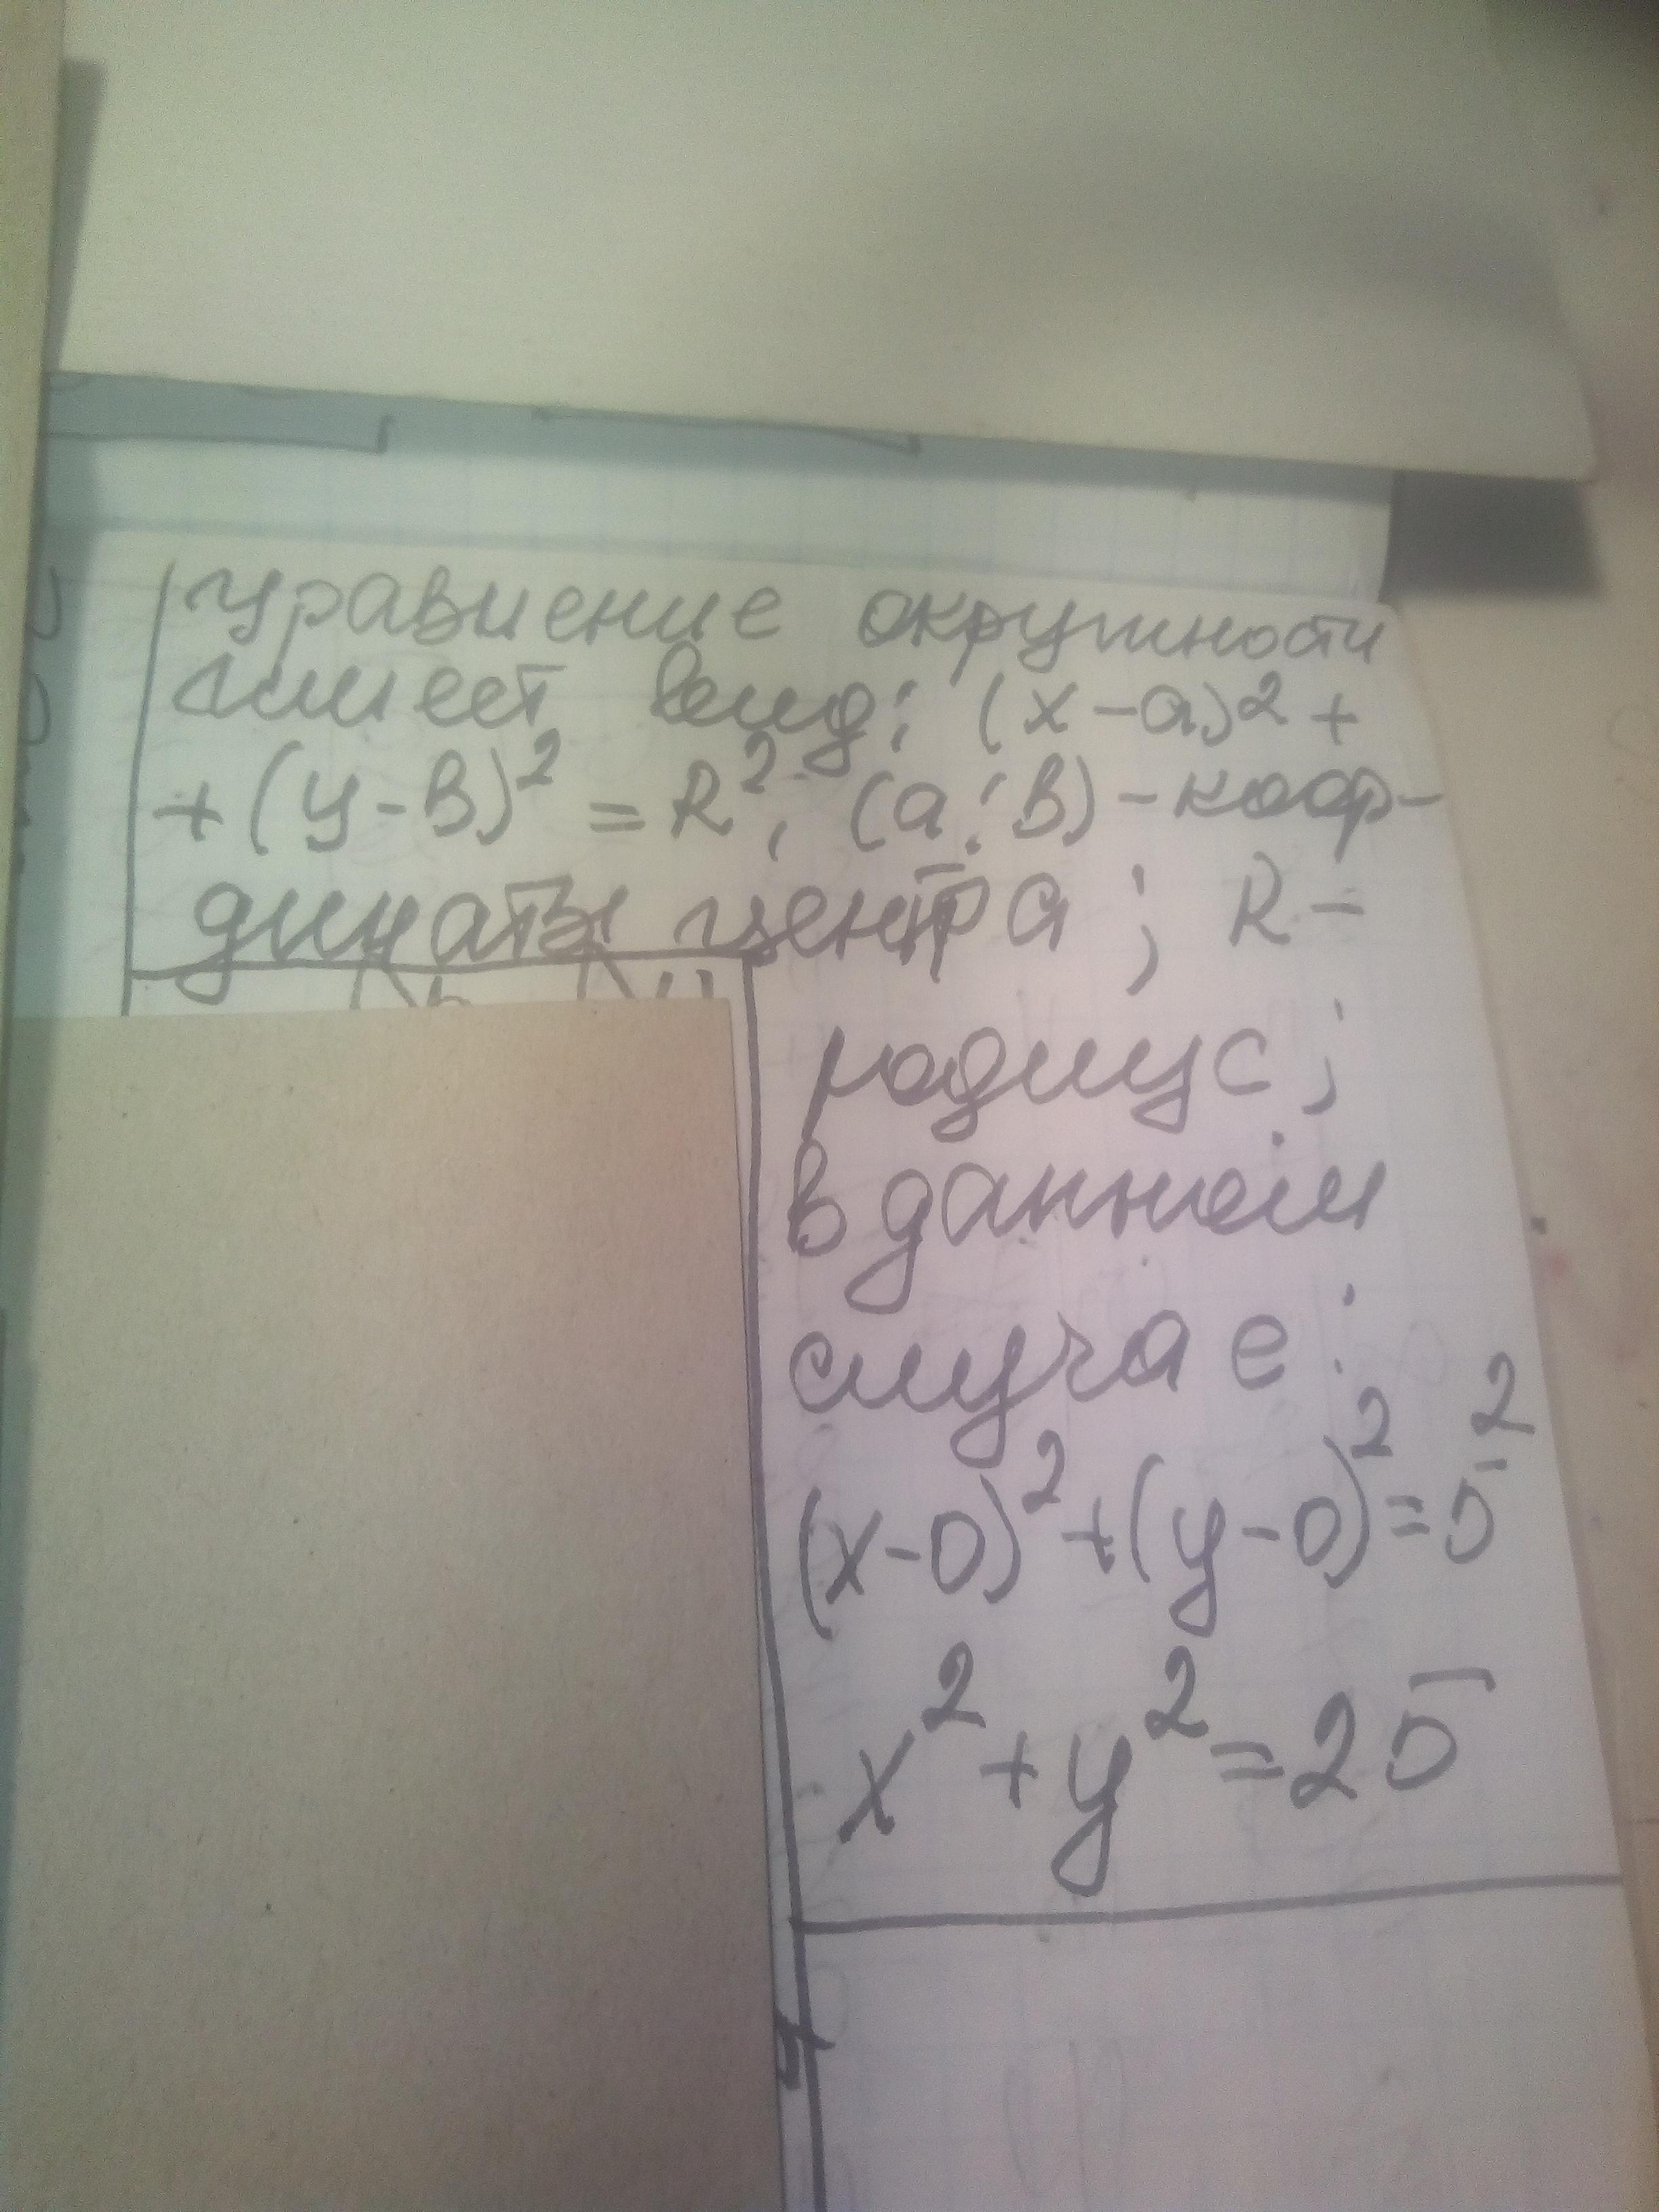 уравнение окружности
имеет вид: (x-a)² +
+ (y-в)² = R², (a; в) - коор-
динаты центра; R -
радиус;
в данном
случае:
(x-0)²+(y-0)²=5²
x²+y²=25